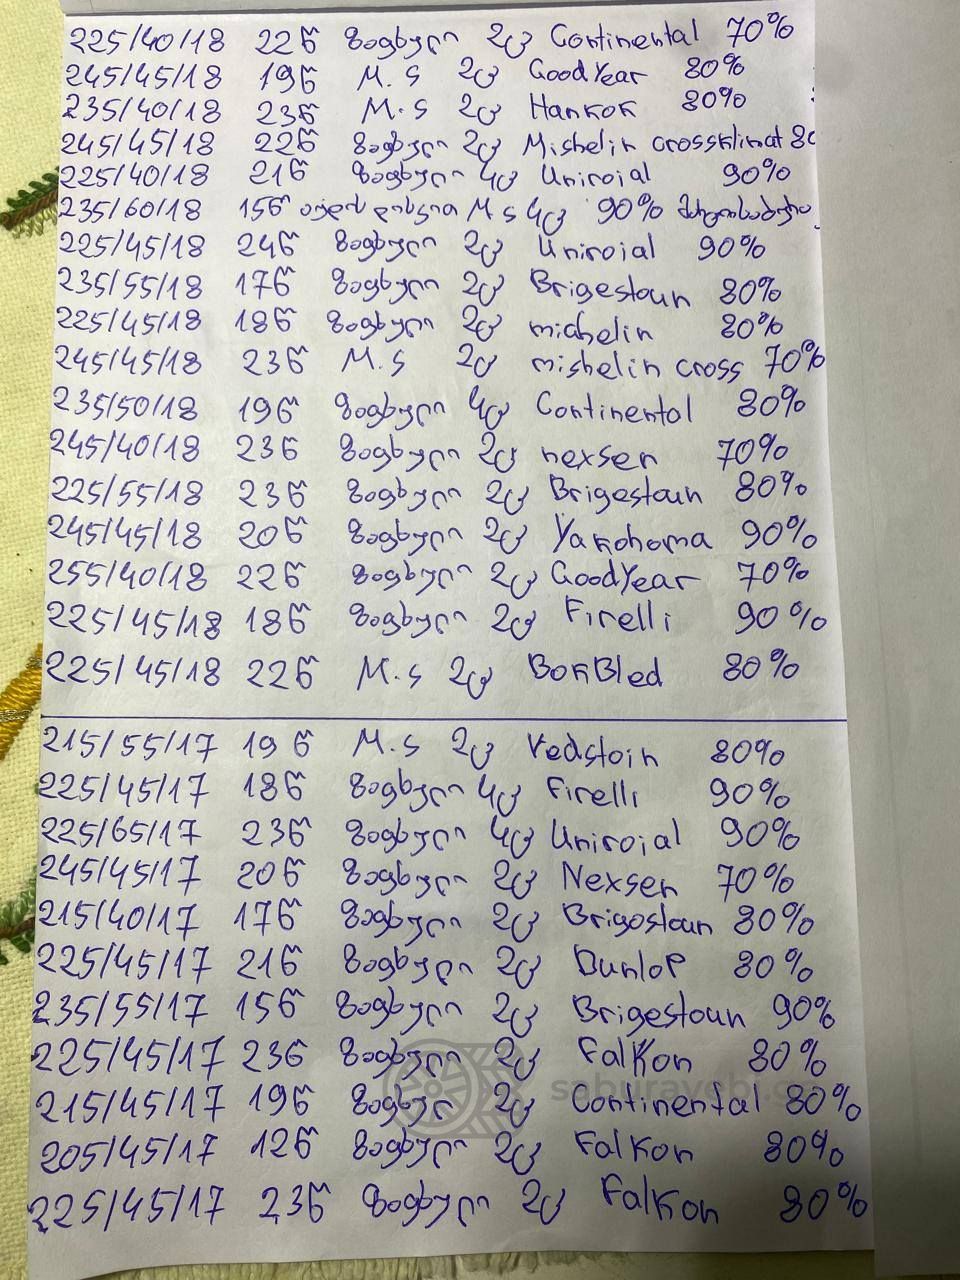 225/40/18 22წ ზაფხული 2ც Continental 70%
245/45/18 19წ M.S 2ც GoodYear 80%
235/40/18 23წ M.S 2ც Hankok 80%
245/45/18 22წ ზაფხული 2ც Mishelin crossklimat 80
225/40/18 21წ ზაფხული 4ც Uniroial 90%
235/60/18 15წ M S 4ც 90%
225/45/18 24წ ზაფხული 2ც Uniroial 90%
235/55/18 17წ ზაფხული 2ც Brigestoun 80%
225/45/18 18წ ზაფხული 2ც michelin 80%
245/45/18 23წ M.S 2ც mishelin cross 70%
235/50/18 19წ ზაფხული 4ც Continental 80%
245/40/18 23წ ზაფხული 2ც nexsen 70%
225/55/18 23წ ზაფხული 2ც Brigestoun 80%
245/45/18 20წ ზაფხული 2ც Yakohoma 90%
255/40/18 22წ ზაფხული 2ც GoodYear 70%
225/45/18 18წ ზაფხული 2ც Firelli 90%
225/45/18 22წ M.S 2ც BonBled 80%
215/55/17 19წ M.S 2ც Vedstoin 80%
225/45/17 18წ ზაფხული 4ც Firelli 90%
225/65/17 23წ ზაფხული 4ც Uniroial 90%
245/45/17 20წ ზაფხული 2ც Nexsen 70%
215/40/17 17წ ზაფხული 2ც Brigestoun 80%
225/45/17 21წ ზაფხული 2ც Dunlop 80%
235/55/17 15წ ზაფხული 2ც Brigestoun 90%
225/45/17 23წ ზაფხული 2ც Falkon 80%
215/45/17 19წ ზაფხული 2ც Continental 80%
205/45/17 12წ ზაფხული 2ც Falkon 80%
225/45/17 23წ ზაფხული 2ც Falkon 80%